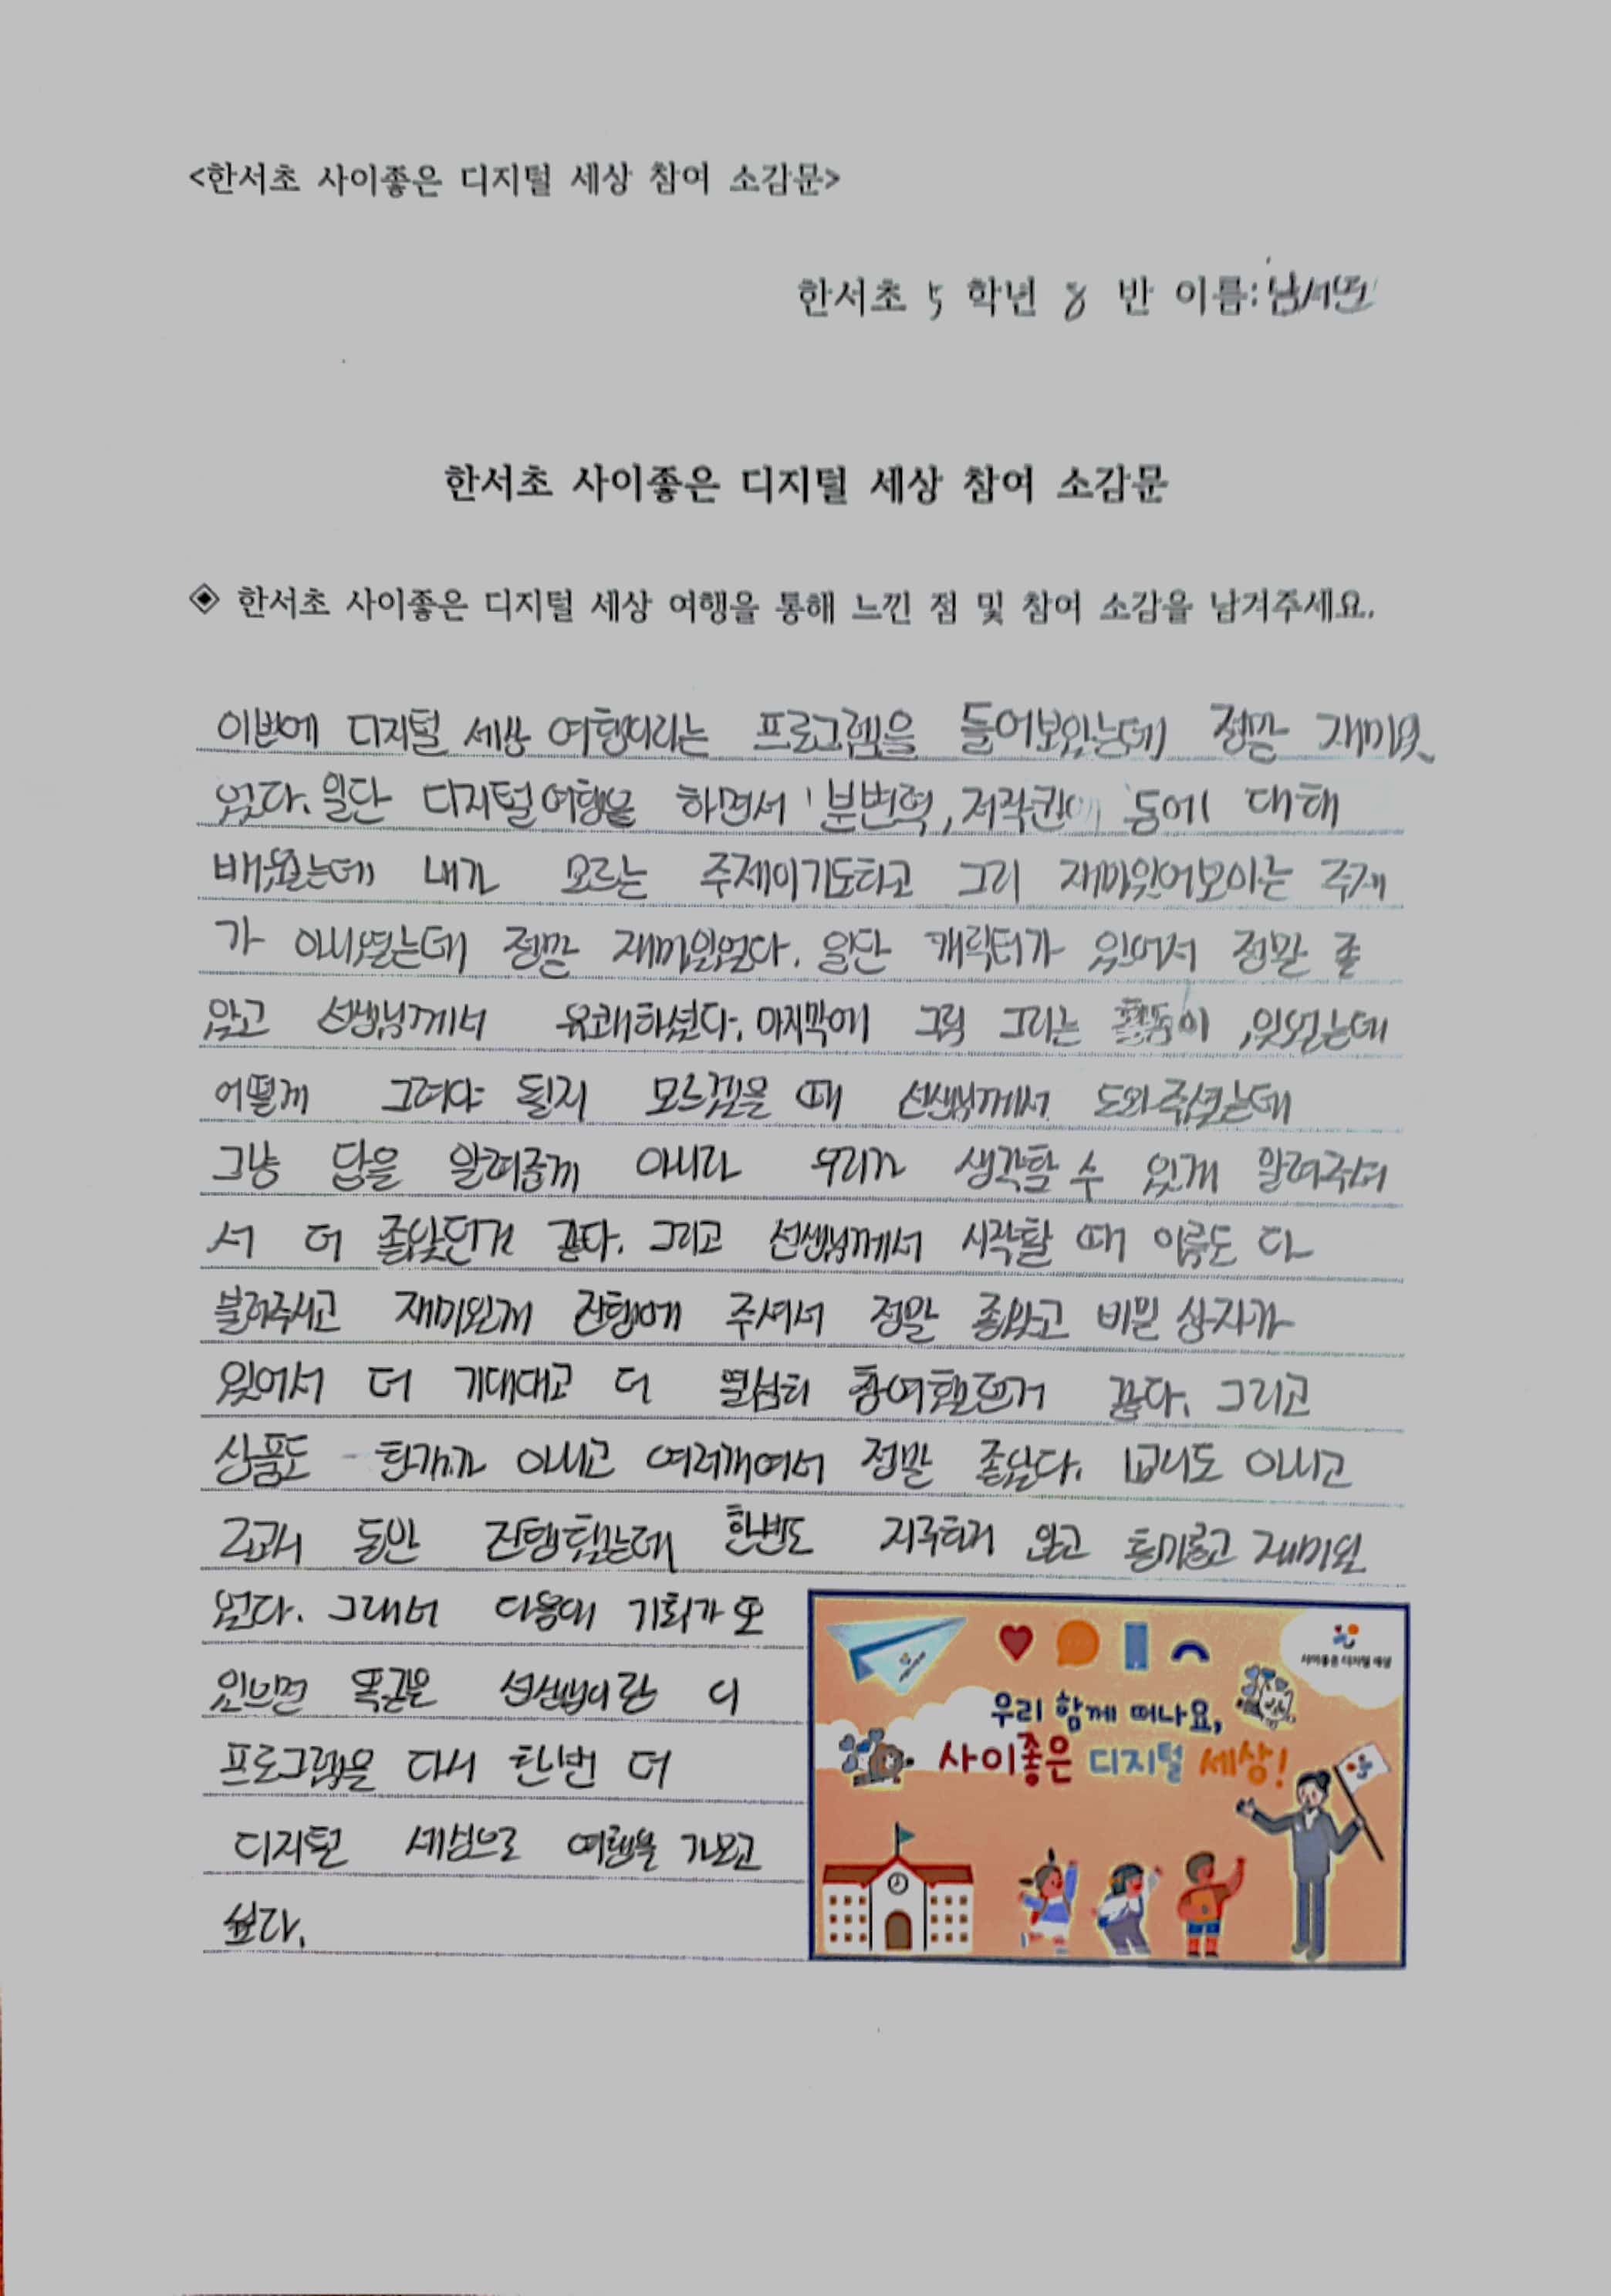 <한서초 사이좋은 디지털 세상 참여 소감문>
한서초 5 학년 8 반 이름:남서
한서초 사이좋은 디지털 세상 참여 소감문
◈ 한서초 사이좋은 디지털 세상 여행을 통해 느낀 점 및 참여 소감을 남겨주세요.
이번에 디지털 세상 여행이라는 프로그램을 들어보았는데 정말 재미있
었다. 일단 디지털여행을 하면서 '분변력, 저작권' 등에 대해
배웠는데 내가 모르는 주제이기도하고 그리 재미있어보이는 주제
가 아니였는데 정말 재미있었다. 일단 캐릭터가 있어서 정말 좋
았고 선생님께서 유쾌하셨다. 마지막에 그림 그리는 활동이 있었는데
어떻게 그려야 될지 모르겠을 때 선생님께서 도와주셨는데
그냥 답을 알려줌게 아니라 우리가 생각할 수 있게 알려주셔
서 더 좋았던거 같다. 그리고 선생님께서 시작할 때 이름도 다
불러주시고 재미있게 진행에 주셔서 정말 좋았고 비밀 상자가
있어서 더 기대대고 더 열심히 참여했던거 같다. 그리고
상품도 한개가 아니고 여러개여서 정말 좋았다. 1교시도 아니고
2교시 동안 진행했는데 한번도 지루하지 않고 흥미롭고 재미있
었다. 그래서 다음에 기회가 또
있으면 똑같은 선생님이랑 이
프로그램을 다시 한번 더
디지털 세상으로 여행을 가보고
싶다.
사이좋은 디지털 세상
우리 함께 떠나요,
사이좋은 디지털 세상!